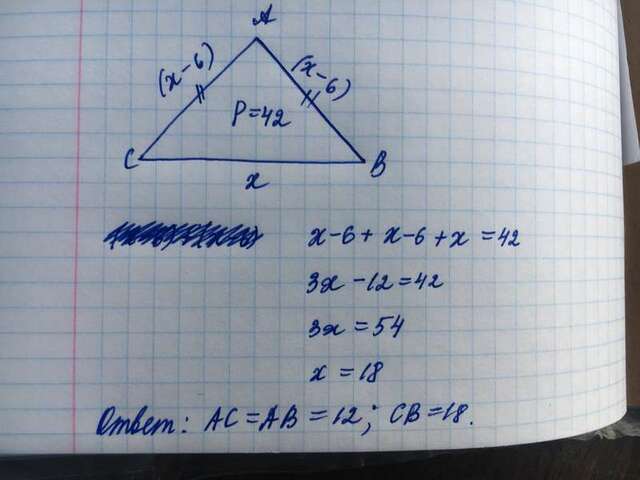 A
(x-6)
(x-6)
P=42
C
B
x
x-6+x-6+x=42
3x-12=42
3x=54
x=18
Ответ: AC=AB=12; CB=18.